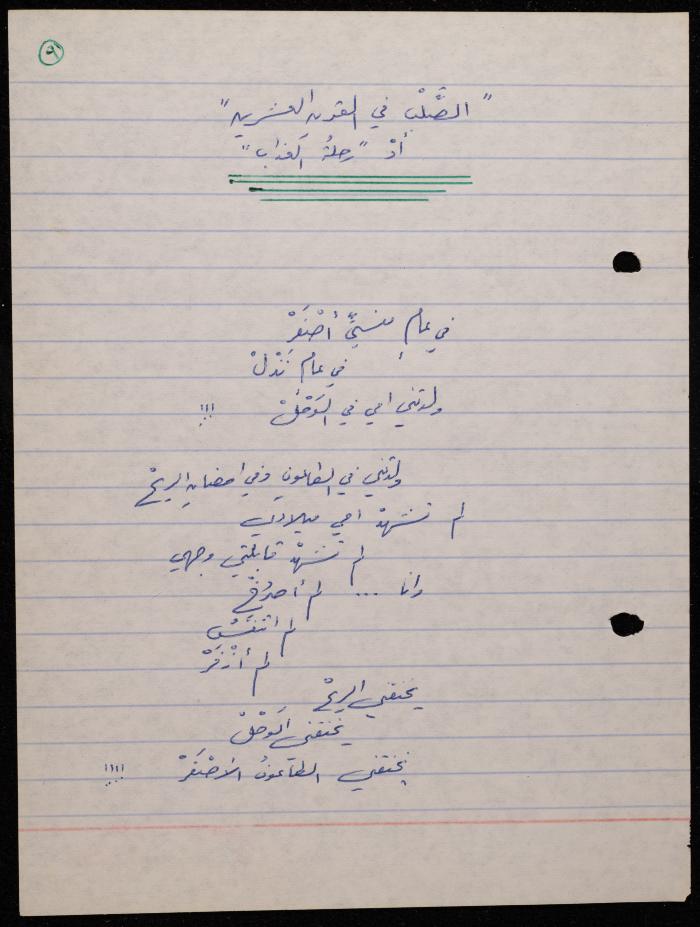 ٩
"الصَّلْب في القرن العشرين"
أوْ "رحلةُ العذاب"
في عام منسيٍّ أصْفَرْ
في عام نَذْلْ
ولدتني أمي في الوَحْلْ !!!
ولدتني في الطاعونِ وفي احضانِ الريحْ
لم تشهدْ امي ميلادي
لم تشهدْ قابلتي وجهي
وانا ... لم أصرُخْ
لم أتنفَّسْ
لم أَزْفَرْ
يخنقني الريحْ
يخنقني الوَحْلْ
يخنقني الطاعونُ الأصْفَرْ !!!!